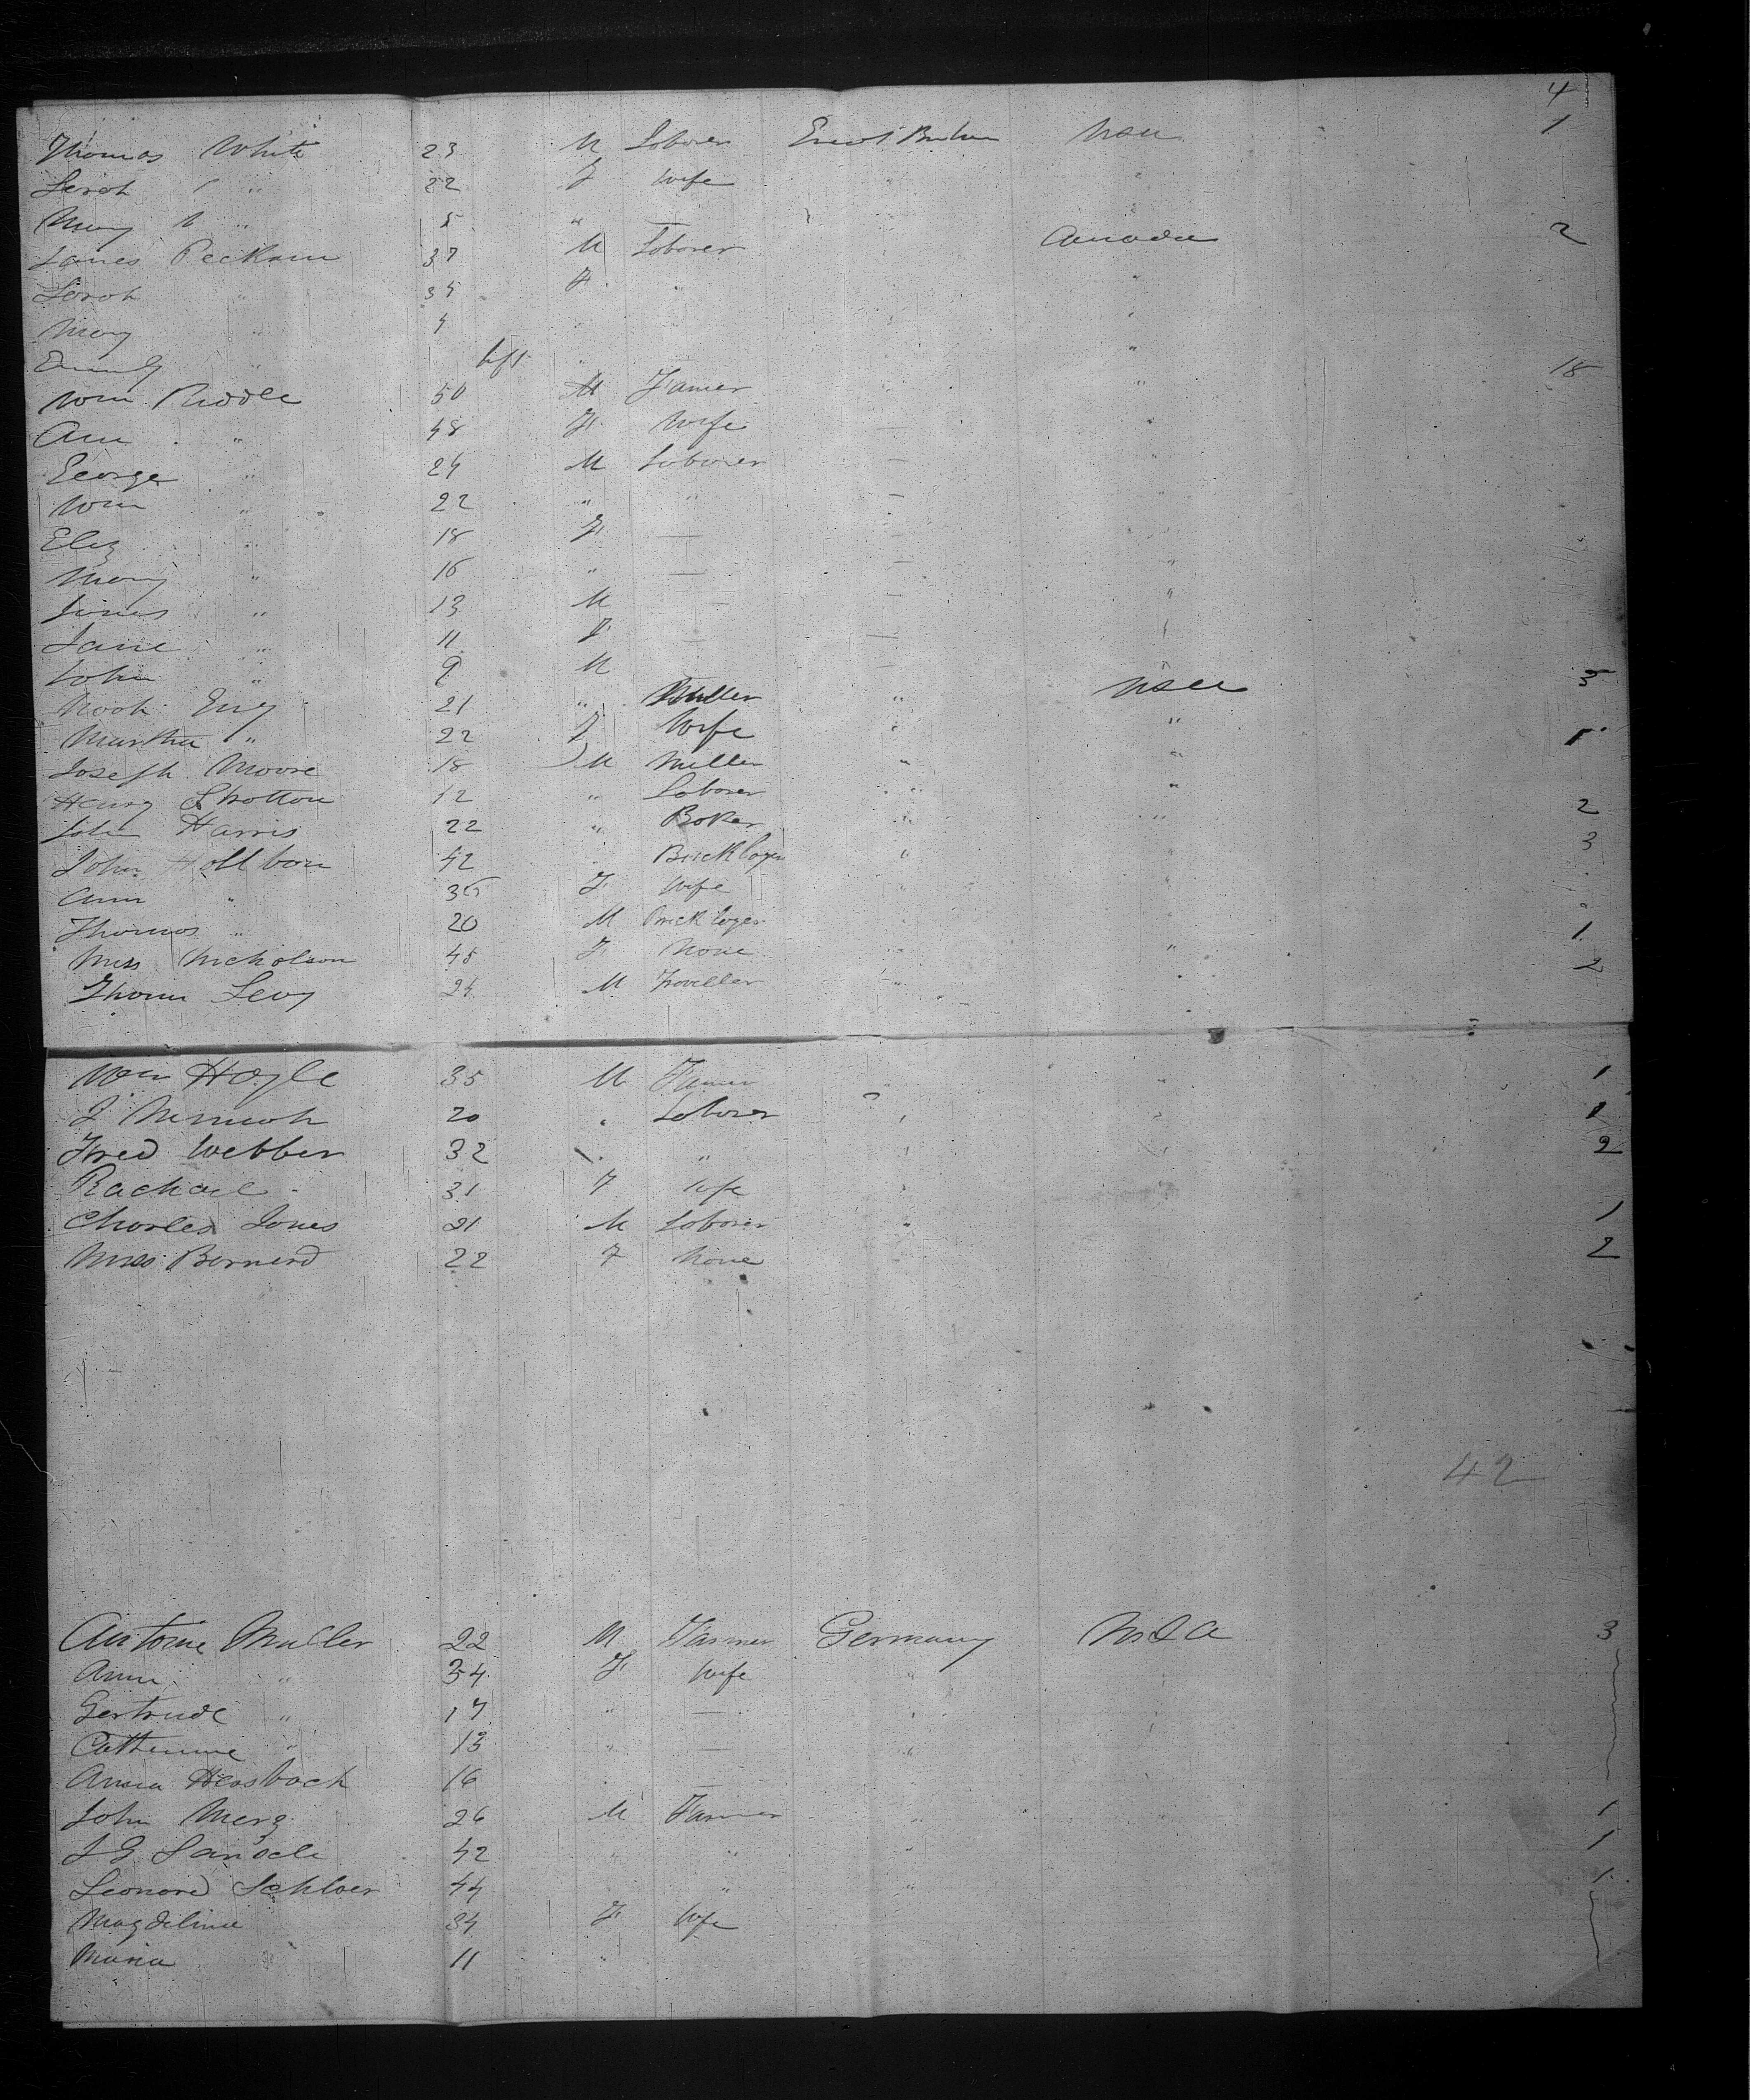 4
Thomas White 23 M Laborer Great Britain USA 1
Sarah " 22 F Wife
Mary " 5 "
James Peckam 37 M Laborer Canada 2
Sarah " 34 F "
Mary " 4
Emily " Inft "
Wm Riddle 50 M Farmer " 18
Ann " 48 F Wife "
George " 24 M Laborer "
Wm " 22 " " "
Eliz " 18 F —
Mary " 16 " — "
James " 13 M — "
Jane " 11 F —
John " 9 M
Noah 21 " Miller " USA 3
Martha " 22 F Wife " " 1
Joseph Moore 18 M Miller " "
Henry Stratton 12 " Laborer " "
John Harris 22 " Baker " " 2
John Hollborn 42 " Bricklayer " 3
Ann " 36 F Wife
Thomas " 20 M Bricklayer
Miss Nicholson 45 F None " 1
Levy 24 M Traveller " 2
Wm Hoyle 35 M Farmer " 1
J 20 " Laborer 1
Fred Webber 32 " " 2
Rachael 31 F Wife
Charles Jones 21 M Laborer " 1
Miss Bernard 22 F None 2
42
Antoine Muller 22 M Farmer Germany USA 3
Ann " 34 F Wife "
Gertrude " 17 " —
Catherine " 13 " — "
Anna Hersbach 16 —
John Merz 26 M Farmer " 1
J G 42 " " " 1
Leonard Schloer 44 " " 1
Magdeline 34 F Wife
Maria 11 "